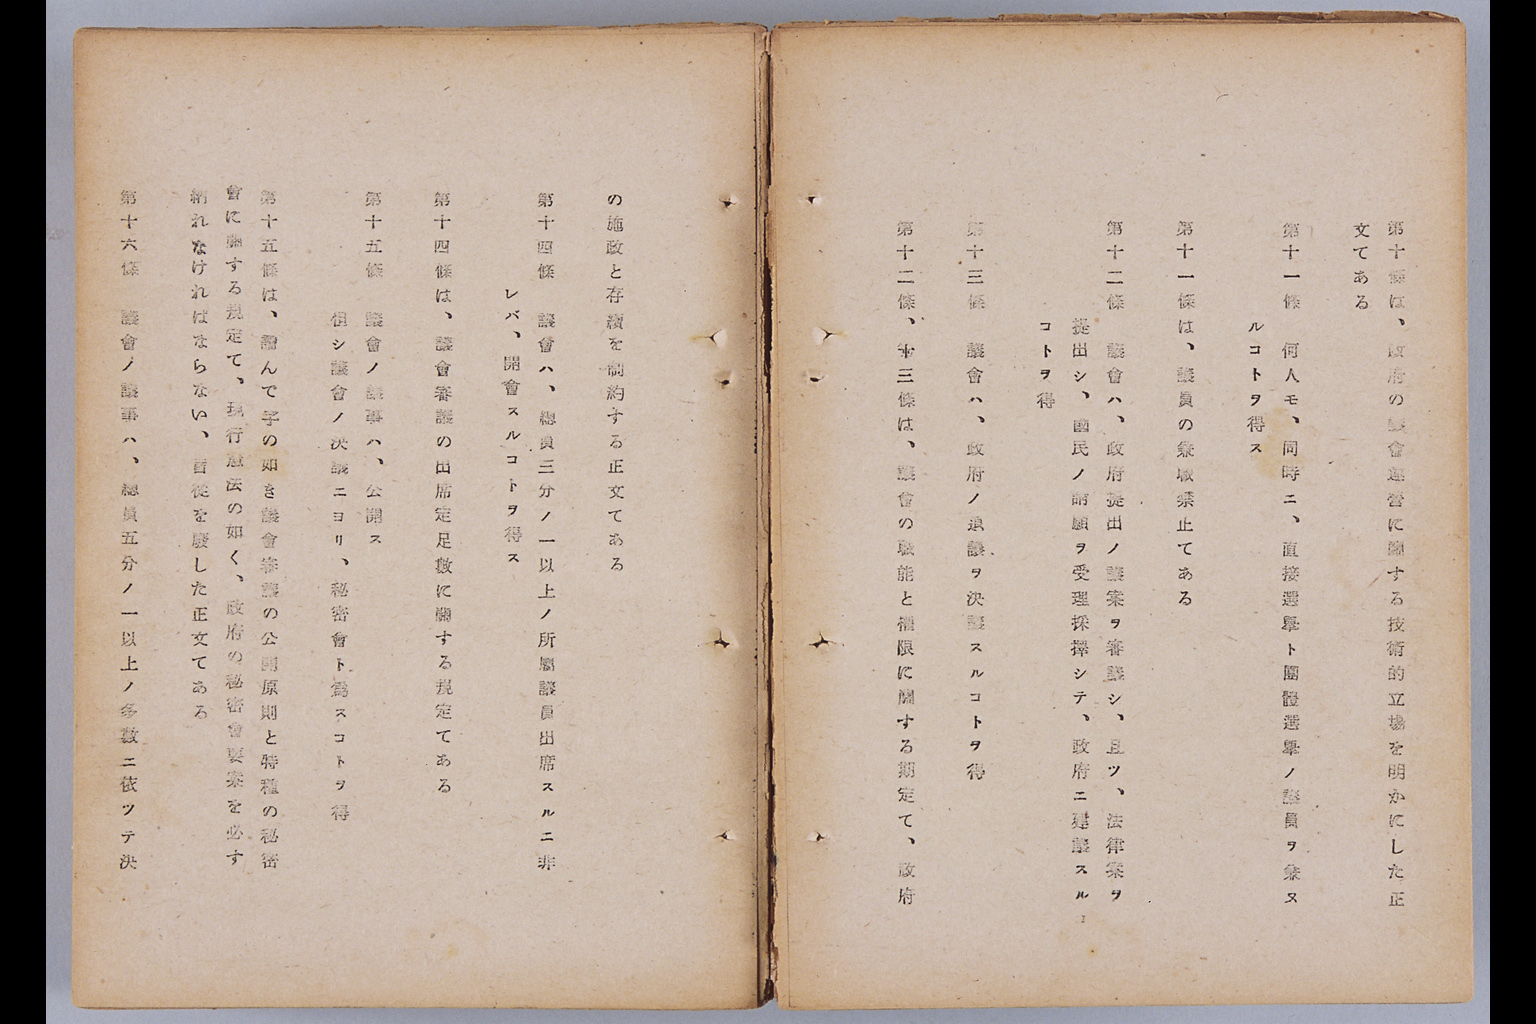 第十條は、政府の議會運營に關する技術的立場を明かにした正
文てある
第十一條　何人モ、同時ニ、直接選擧ト團體選擧ノ議員ヲ兼ヌ
ルコトヲ得ス
第十一條は、議員の兼職禁止てある
第十二條　議會ハ、政府提出ノ議案ヲ審議シ、且ツ、法律案ヲ
提出シ、國民ノ請願ヲ受理採擇シテ、政府ニ建議スル
コトヲ得
第十三條　議會ハ、政府ノ決議スルコトヲ得
第十二條、十三條は、議會の職能と權限に關する期定て、政府
の施政と存續を制約する正文てある
第十四條　議會ハ、總員三分ノ一以上ノ所屬議員出席スルニ非
レバ、開會スルコトヲ得ス
第十四條は、議會審議の出席定足數に關する規定てある
第十五條　議會ノ議事ハ、公開ス
但シ議會ノ決議ニヨリ、秘密會ト爲スコトヲ得
第十五條は、讀んで字の如き議會審議の公開原則と特種の秘密
會に關する規定て、現行憲法の如く、政府の秘密會要案を必す
納れなければならない、盲從を廢した正文てある
第十六條　議會ノ議事ハ、總員五分ノ一以上ノ多數ニ依ツテ決